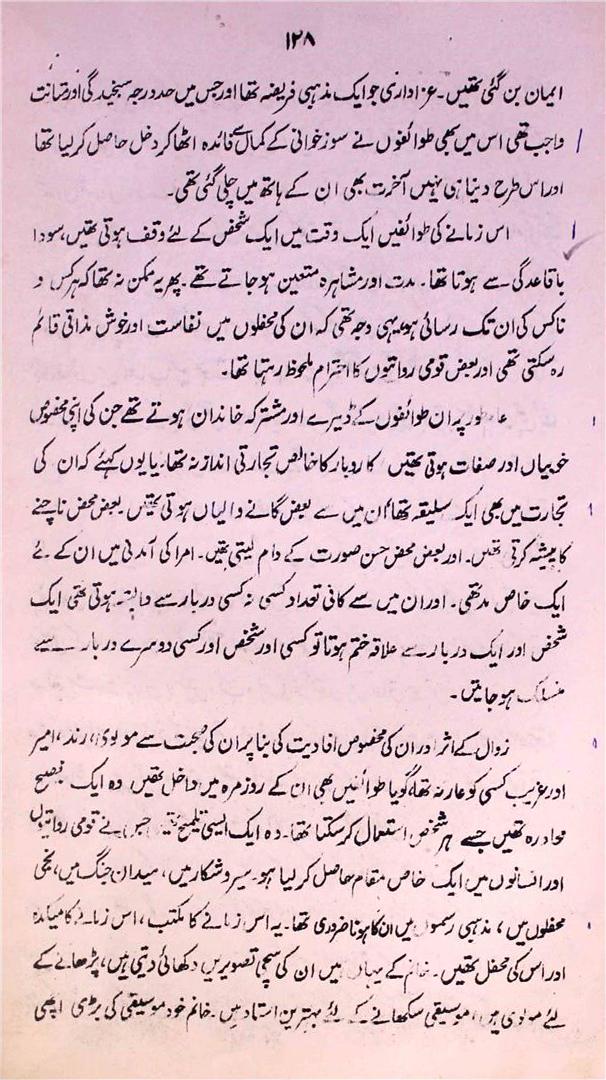 ۱۲۸
ایمان بن گئی تھیں۔ عزاداری جو ایک مذہبی فریضہ تھا اور جس میں حد درجہ سنجیدگی اور متانت
واجب تھی اس میں بھی طوائفوں نے سوز خوانی کے کمال سے فائدہ اٹھا کر دخل حاصل کر لیا تھا
اور اس طرح دنیا ہی نہیں آخرت بھی ان کے ہاتھ میں چلی گئی تھی۔
اس زمانے کی طوائفیں ایک وقت میں ایک شخص کے لئے وقف ہوتی تھیں، سودا
باقاعدگی سے ہوتا تھا۔ مدت اور مشاہرہ متعین ہو جاتے تھے۔ پھر یہ ممکن نہ تھا کہ ہر کس و
ناکس کی ان تک رسائی ہو، یہی وجہ تھی کہ ان کی محفلوں میں نفاست اور خوش مذاقی قائم
رہ سکتی تھی اور بعض قومی روایتوں کا احترام ملحوظ رہتا تھا۔
عام طور پر ان طوائفوں کے ڈیرے اور مشترکہ خاندان ہوتے تھے جن کی اپنی مخصوص
خوبیاں اور صفات ہوتی تھیں کاروبار کا خالص تجارتی انداز نہ تھا۔ یا یوں کہئے کہ ان کی
تجارت میں بھی ایک سلیقہ تھا، ان میں سے بعض گانے والیاں ہوتی تھیں بعض محض ناچنے
کا پیشہ کرتی تھیں۔ اور بعض محض حسن صورت کے دام لیتی تھیں۔ امرا کی آمدنی میں ان کے لئے
ایک خاص مد تھی۔ اور ان میں سے کافی تعداد کسی نہ کسی دربار سے وابستہ ہوتی تھی ایک
شخص اور ایک دربار سے علاقہ ختم ہوتا تو کسی اور شخص اور کسی دوسرے دربار سے
منسلک ہو جاتیں۔
زوال کے اثر اور ان کی مخصوص افادیت کی بنا پر ان کی صحبت سے مولوی، رند، امیر
اور غریب کسی کو عار نہ تھا، گویا طوائفیں بھی ان کے روزمرہ میں داخل تھیں وہ ایک فصیح
محاورہ تھیں جسے ہر شخص استعمال کر سکتا تھا۔ وہ ایک ایسی تلمیح تھیں جس نے قومی روایتوں
اور افسانوں میں ایک خاص مقام حاصل کر لیا ہو۔ سیر و شکار میں، میدان جنگ میں، نجی
محفلوں میں، مذہبی رسموں میں ان کا ہونا ضروری تھا۔ یہ اس زمانے کا مکتب، اس زمانے کا میکدہ
اور اس کی محفل تھیں۔ خانم کے یہاں ہمیں ان کی سچی تصویریں دکھائی دیتی ہیں، پڑھانے کے
لئے مولوی ہیں، موسیقی سکھانے کے لئے بہترین استاد ہیں۔ خانم خود موسیقی کی بڑی اچھی